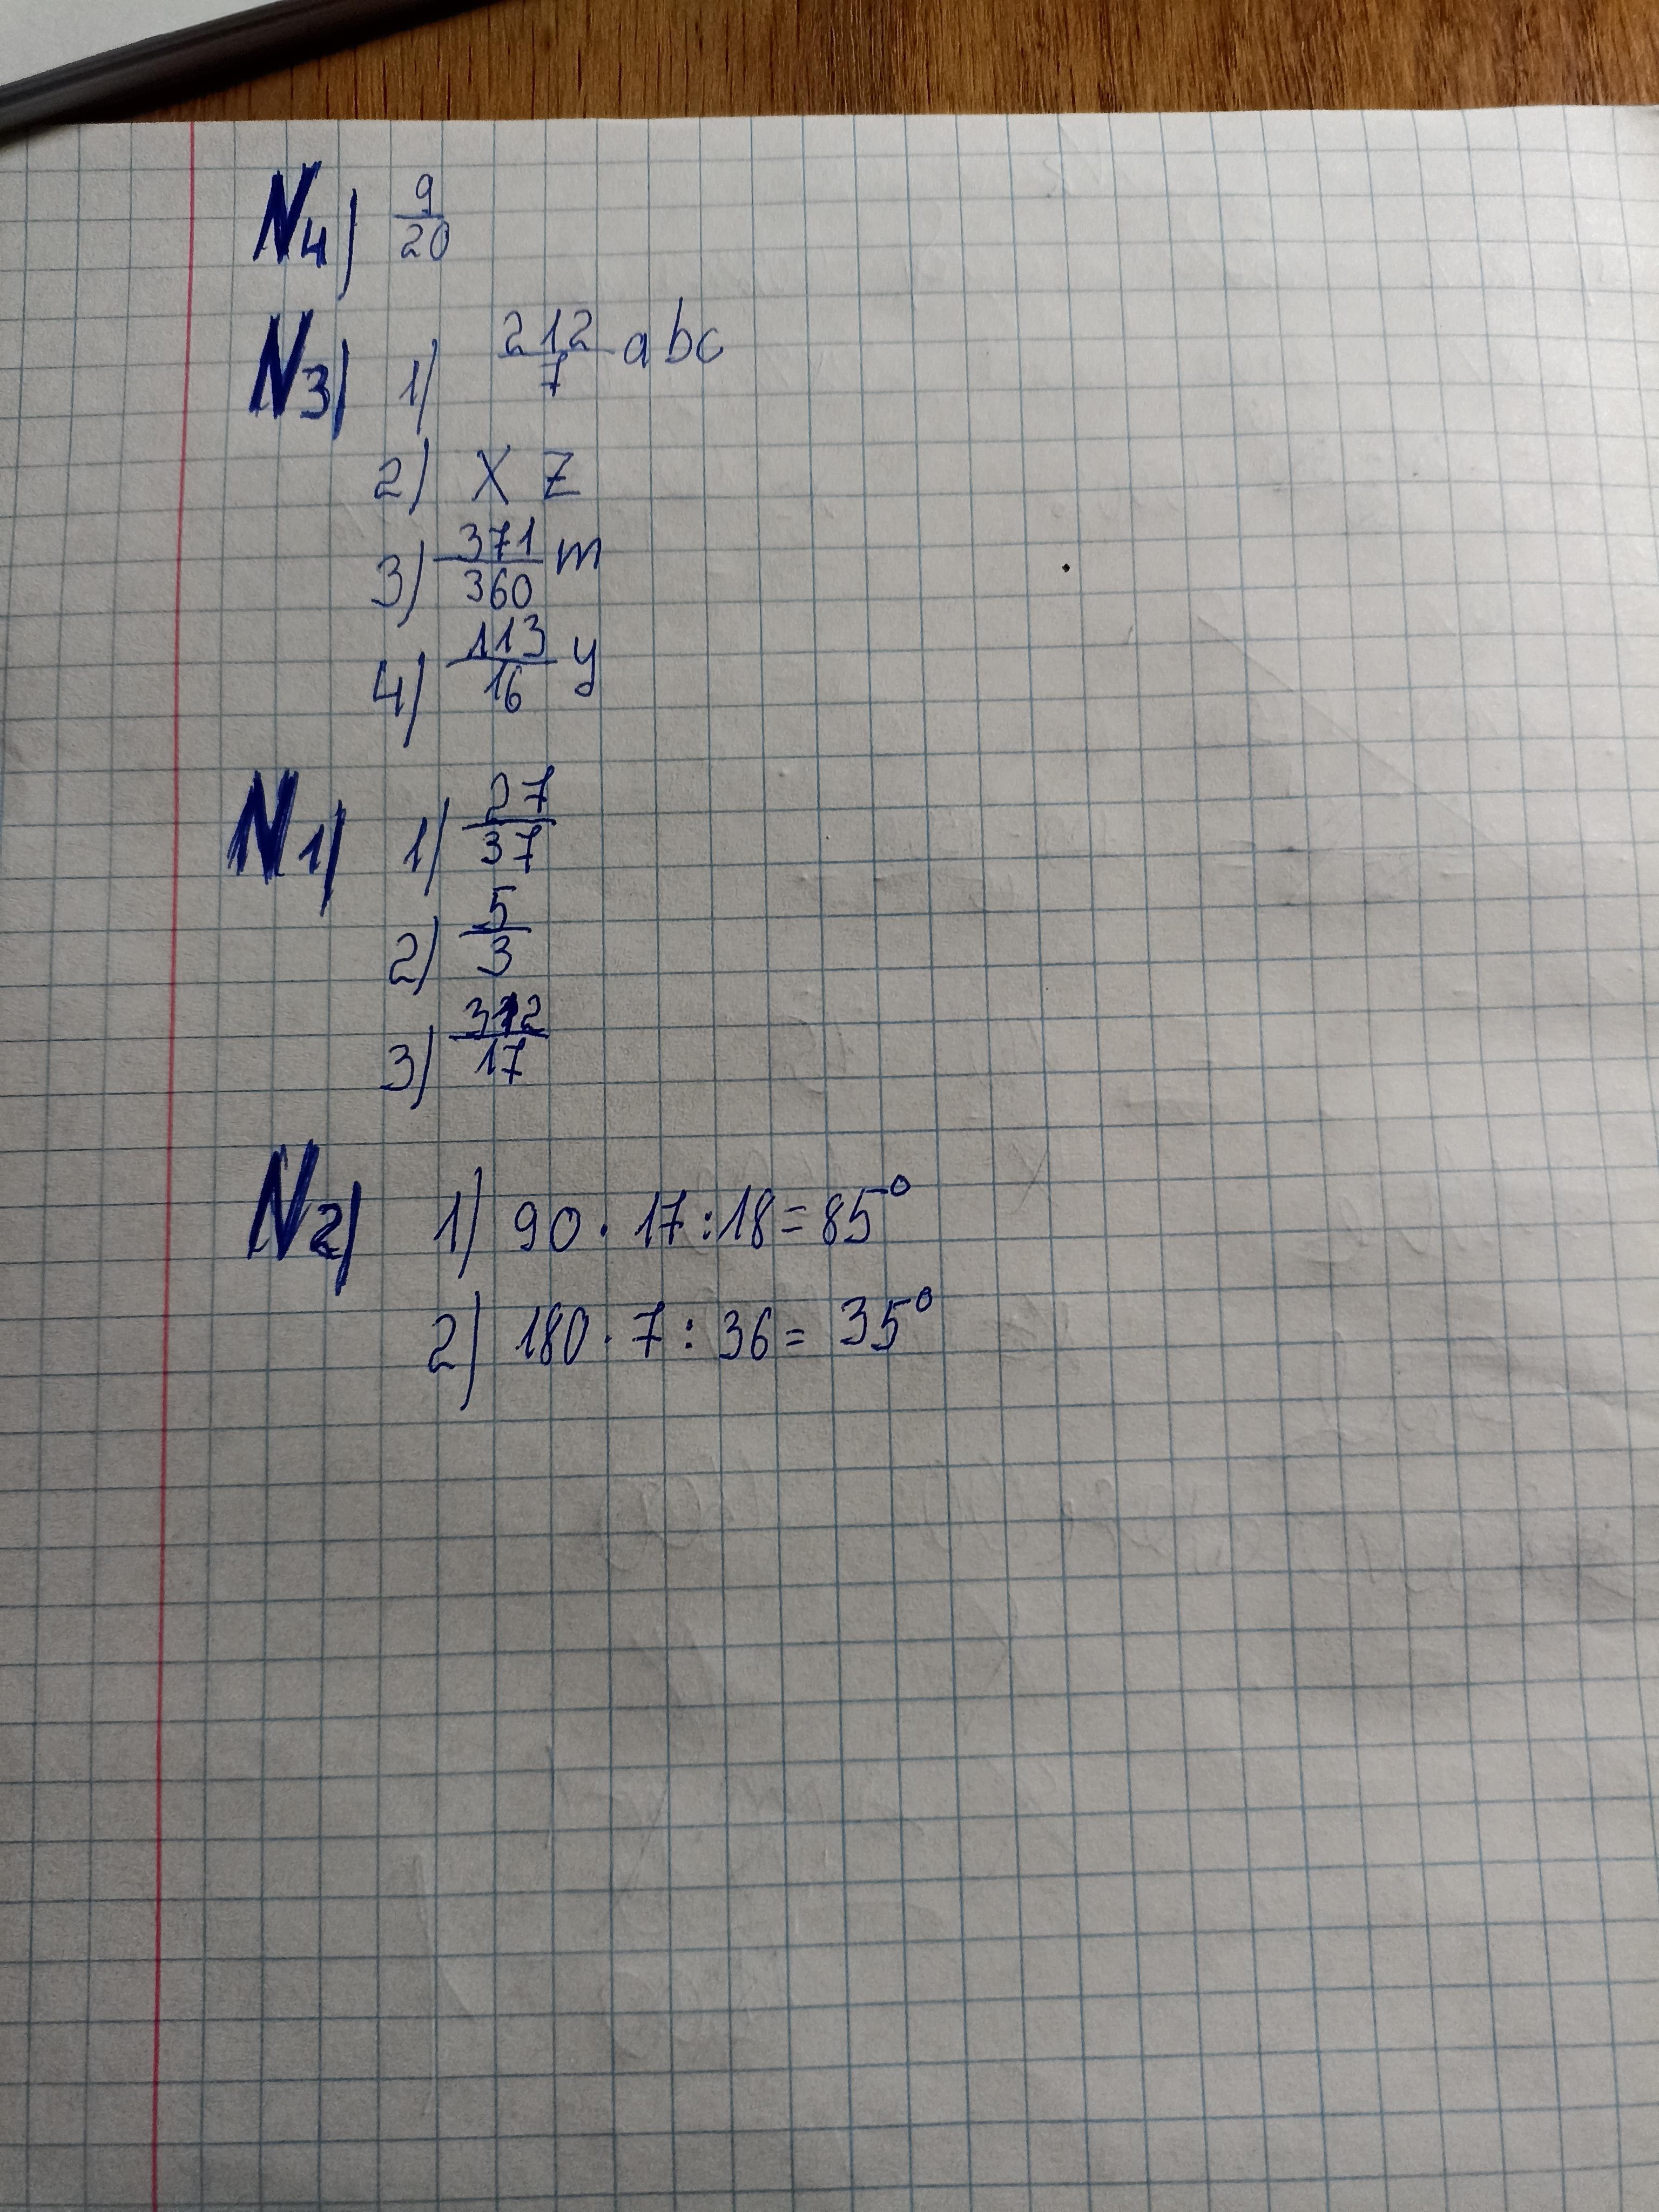 N4) 9/20
N3) 1) 212/7 abc
2) X Z
3) 371/360 m
4) 113/16 y
N1) 1) 27/37
2) 5/3
3) 312/17
N2) 1) 90 · 17 : 18 = 85°
2) 180 · 7 : 36 = 35°